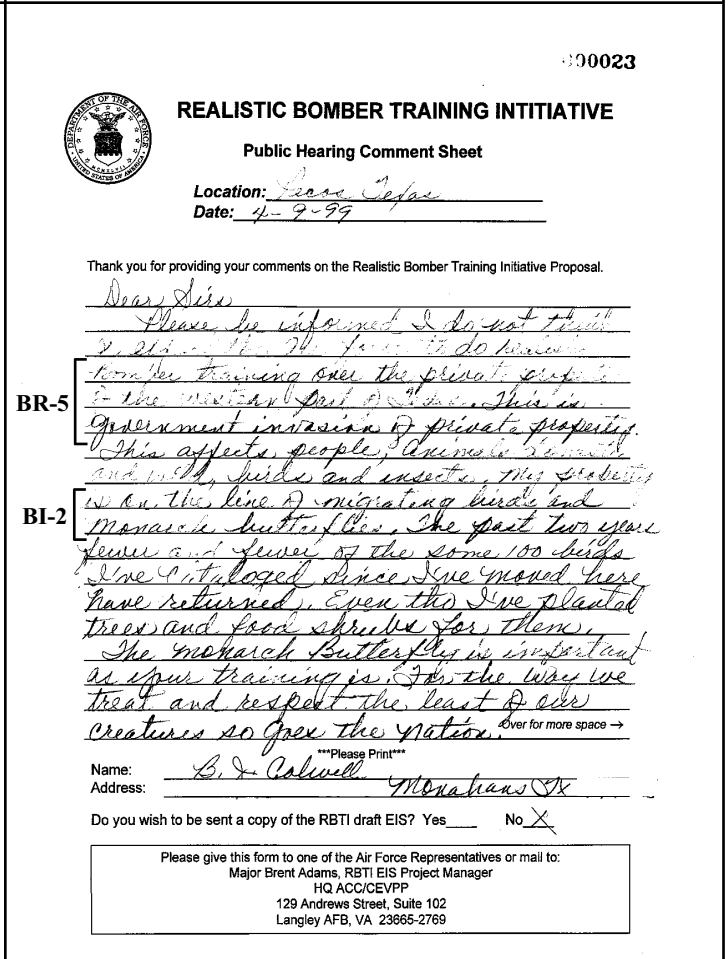 000023
DEPARTMENT OF THE AIR FORCE
UNITED STATES OF AMERICA
REALISTIC BOMBER TRAINING INTITIATIVE
Public Hearing Comment Sheet
Location: Pecos Texas
Date: 4-9-99
Thank you for providing your comments on the Realistic Bomber Training Initiative Proposal.
Dear Sirs
Please be informed I do not
to do
bomber training over the private
BR-5
the western part of This is
government invasion of private property.
This affects people, animals
and birds and insects. My property
BI-2
is on the line of migrating birds and
Monarch butterflies. The past two years
fewer and fewer of the some 100 birds
I've Cataloged since I've moved here
have returned. Even tho I've planted
trees and food shrubs for them.
The Monarch Butterfly is important
as your training is. For the way we
treat and respect the least of our
Creatures so goes the Nation.
Over for more space →
***Please Print***
Name: B. Colwell
Address: Monahans TX
Do you wish to be sent a copy of the RBTI draft EIS? Yes____ No X
Please give this form to one of the Air Force Representatives or mail to:
Major Brent Adams, RBTI EIS Project Manager
HQ ACC/CEVPP
129 Andrews Street, Suite 102
Langley AFB, VA 23665-2769